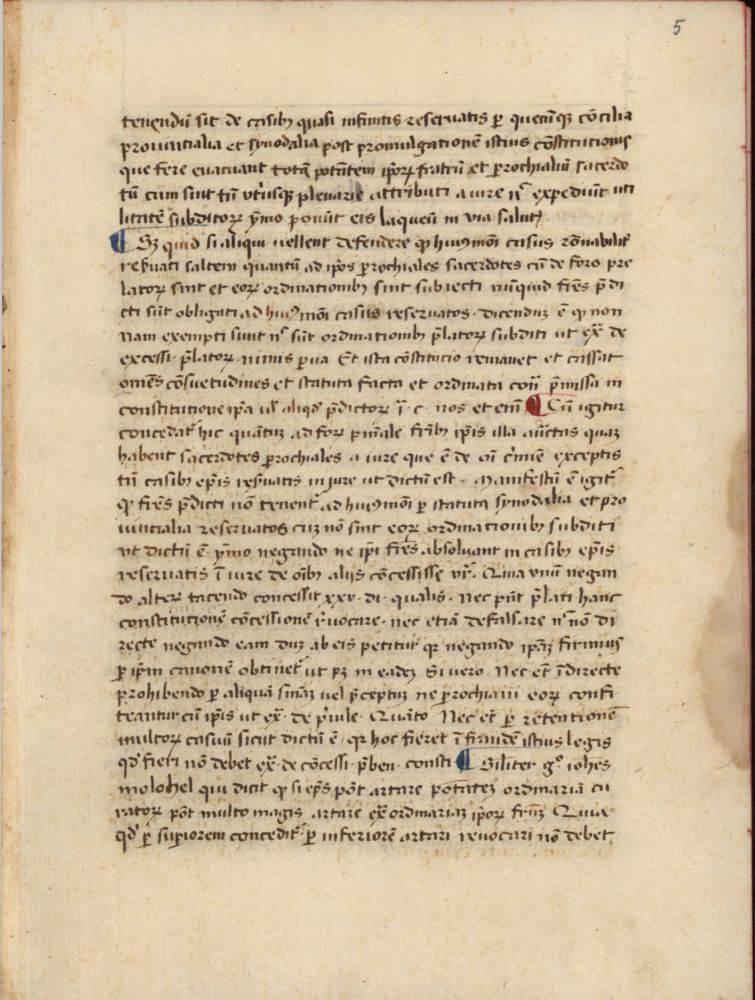 5
tenendū sit de casibꝫ quasi infinitis reseruatis ꝑ quecūqꝫ cōcilia
prouincialia et synodalia post promulgationē istius cōstitucionis
que fere euacuant totā potētem ipoꝝ fratrū et ꝑrochialiū sacerdo
tū cum sint tū vtrisqꝫ plenarie attributi a iure nͦ expediūt uti
litatē subditoꝝ ymo ponūt eis laqueū in via salutꝭ
¶ Sꝫ quid si aliqui uellent defendere qꝫ huꝰmōi casus rōnabilit̄
rꝭuati saltem quantū ad ip̄os ꝑrochiales sacerdotes cū de foro pre
latoꝝ sint et eoꝝ ordinationibꝫ sint subiecti nūquid fr̄es p̄di
cti sūt obligati ad huꝰmōi casus reseruatos · dicendū ē qꝫ non
nam exempti sunt nͦ sūt ordinationibꝫ p̄latoꝝ subditi ut ex̄ de
excessi · p̄latoꝝ · nimis p̄ua Et ista cōstitucio remanet et cassat
omēs cōsuetudines et statuta facta et ordinata cont̄ p̄missa in
constitutione ip̄a ul̄ aliqd̄ p̄dictoꝝ ī · c · nos et etm̄ ¶ Cū igitur
concedat᷑ hic quātuꝫ ad foꝝ p̄niāle fr̄ibꝫ ip̄is illa auc̄tas quaꝫ
habent sacerdotes ꝑrochiales a iure que ē de oī c̄mīe exceptis
tn̄ casibꝫ ep̄is res̄uatis in jure ut dictū est · Manifestū ē igit᷑
qꝫ fr̄es p̄dicti nō tenent᷑ ad huꝰmōi ꝑ statuta synodalia et pro
uincialia reseruatos cuꝫ nō sint eoꝝ ordinacionibꝫ subditi
ut dictū ē · ymo negando ne ip̄i fr̄es absoluant in casibꝫ ep̄is
reseruatis ī iure de oībꝫ alijs cōcessisse vr̄ · Quia vnū negan
do alteꝝ tacendo concessit xxv · di · qualis · Nec pn̄t p̄lati hanc
constitutionē cōcessionē r̄uocare · nec etiā defalsare nͦ nō di
recte negando eam duꝫ ab eis petitur qꝛ negando ip̄aꝫ firmius
ꝑ ip̄m canonē obtinet᷑ ut pꝫ in eadeꝫ Si uero · Nec et̄ īdirecte
prohibendo ꝑ aliquā sn̄iaꝫ uel p̄ceptuꝫ ne ꝑrochiani eoꝝ confi
teantur cū ip̄is ut ex̄ · de p̄uile · Quāto Nec et̄ ꝑ retentionē
multoꝝ casuū sicut dictū ē · qꝛ hoc fieret ī fraudē istius legis
qd̄ fieri nō debet ex̄ · de cōcessi · p̄ben · consti ¶ Siliter gͦ iohēs
molohel qui dicit qꝫ si ep̄s pōt artare potatēꝫ ordinariā cu
ratoꝝ pōt multo magis artare ex̄ordinariaꝫ ip̄oꝝ fr̄uꝫ Quia
qd̄ ꝑ suꝑiorem concedit᷑ ꝑ inferiorē artari reuocari nō debet